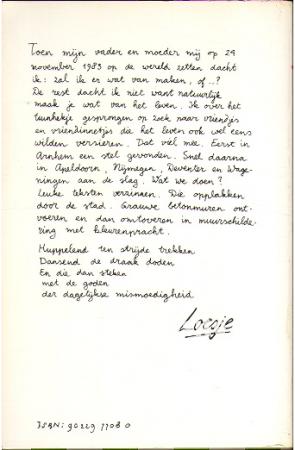 Toen mijn vader en moeder mij op 24
november 1983 op de wereld zetten dacht
ik: zal ik er wat van maken, of..?
De rest dacht ik niet want natuurlijk
maak je wat van het leven. Ik over het
tuinhekje gesprongen op zoek naar vriendjes
en vriendinnetjes die het leven ook wel eens
wilden versieren. Dat viel mee. Eerst in
Arnhem een stel gevonden. Snel daarna
in Apeldoorn, Nijmegen, Deventer en Wage-
ningen aan de slag. Wat we doen?
Leuke teksten verzinnen. Die opplakken
door de stad. Grauwe betonmuren ont-
voeren en dan omtoveren in muurschilde-
ring met kleurenpracht.
Huppelend ten strijde trekken
Dansend de draak doden
En die dan steken
met de goden
der dagelijkse mismoedigheid
Loesje
ISBN: 90 229 7708 0